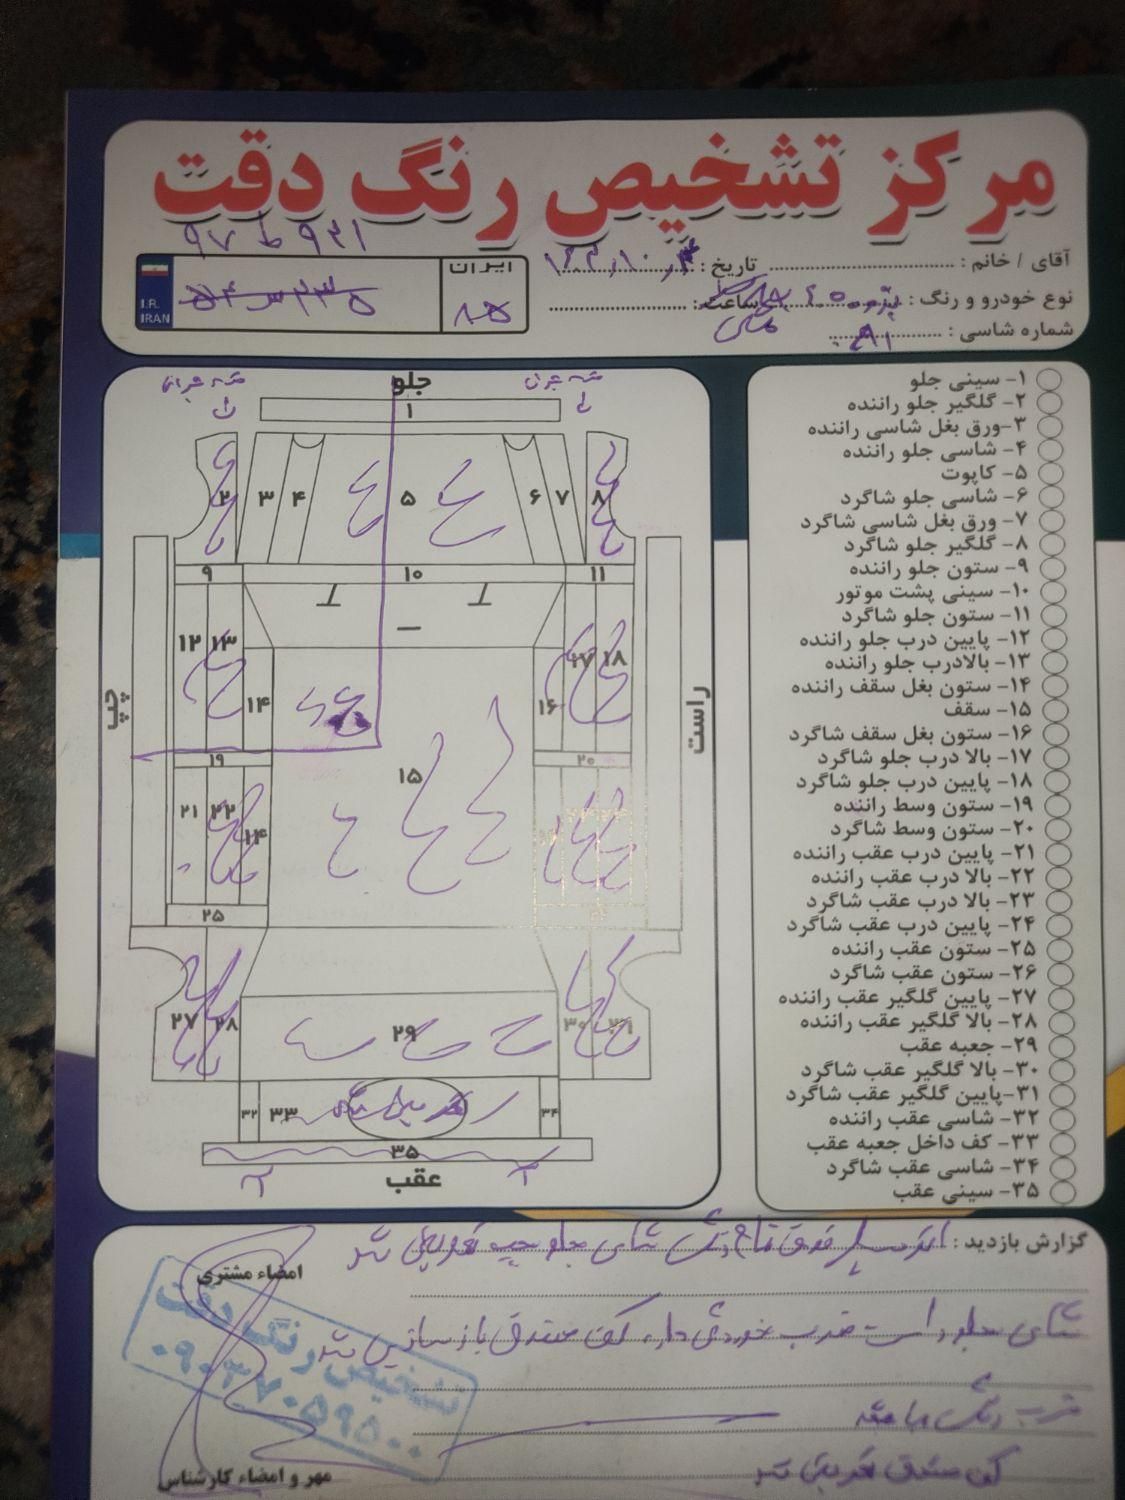 مرکز تشخیص رنگ دقت
۹۷ ط ۹۳۱
آقای / خانم :
تاریخ :
نوع خودرو و رنگ :
ساعت :
شماره شاسی :
ایران
۸۵
I.R.
IRAN
۱- سینی جلو
۲- گلگیر جلو راننده
۳-ورق بغل شاسی راننده
۴- شاسی جلو راننده
۵- کاپوت
۶- شاسی جلو شاگرد
۷- ورق بغل شاسی شاگرد
۸- گلگیر جلو شاگرد
۹- ستون جلو راننده
۱۰- سینی پشت موتور
۱۱- ستون جلو شاگرد
۱۲- پایین درب جلو راننده
۱۳- بالادرب جلو راننده
۱۴- ستون بغل سقف راننده
۱۵- سقف
۱۶- ستون بغل سقف شاگرد
۱۷- بالا درب جلو شاگرد
۱۸- پایین درب جلو شاگرد
۱۹- ستون وسط راننده
۲۰- ستون وسط شاگرد
۲۱- پایین درب عقب راننده
۲۲- بالا درب عقب راننده
۲۳- بالا درب عقب شاگرد
۲۴- پایین درب عقب شاگرد
۲۵- ستون عقب راننده
۲۶- ستون عقب شاگرد
۲۷- پایین گلگیر عقب راننده
۲۸- بالا گلگیر عقب راننده
۲۹- جعبه عقب
۳۰- بالا گلگیر عقب شاگرد
۳۱-پایین گلگیر عقب شاگرد
۳۲- شاسی عقب راننده
۳۳- کف داخل جعبه عقب
۳۴- شاسی عقب شاگرد
۳۵- سینی عقب
جلو
۱
۲ ۳ ۴ ۵ ۶ ۷ ۸
۹ ۱۰ ۱۱
۱۲ ۱۳ ۱۷ ۱۸
۱۴ ۱۶
چپ
راست
۱۹ ۲۰
۱۵
۲۱ ۲۲ ۱۴
۲۵
۲۷ ۲۸ ۲۹ ۳۰ ۳۱
۳۲ ۳۳ ۳۴
۳۵
عقب
گزارش بازدید : رنگ شاسی جلو چپ تعویض شد
شاسی جلو راست ضرب خوردگی دارد کف صندوق بازسازی شد
کف صندوق تعویض شد
امضاء مشتری
تشخیص رنگ دقت
۰۹۰۳۷۰۵۹۵۰۰
مهر و امضاء کارشناس